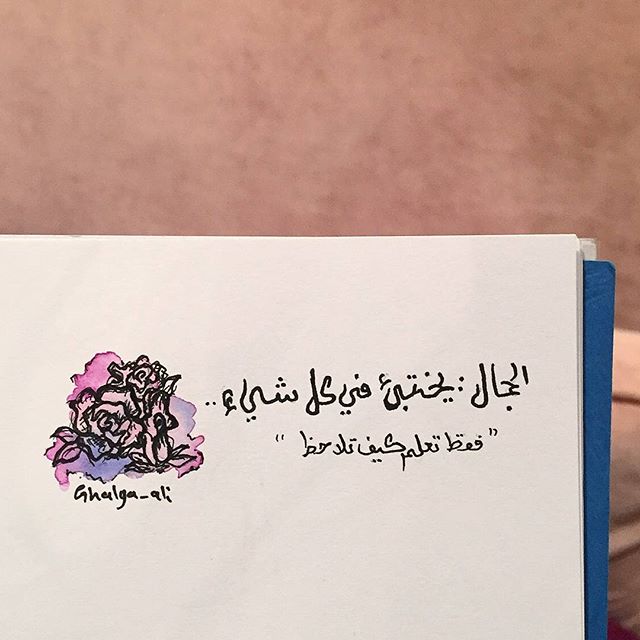 الجمال : يختبئ في كل شيءٍ ..
" فقط تعلم كيف تلاحظ "
Ghalga_ali